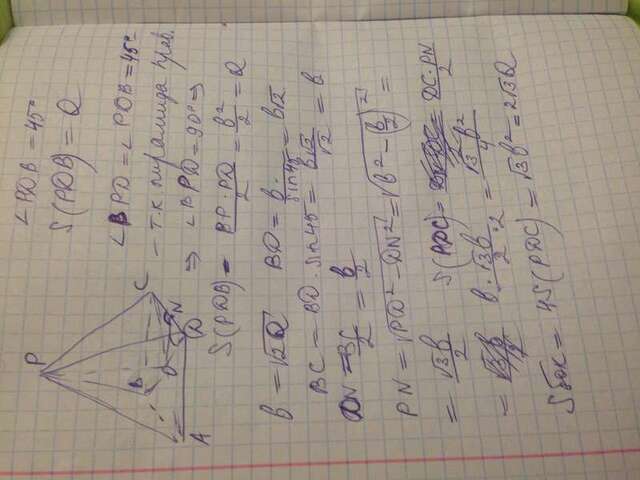 ∠PDB = 45°
S(PDB) = Q
P
A
B
C
D
O
N
∠BPD = ∠PDB = 45°
— т.к пирамида прав.
⇒ ∠BPD = 90° ⇒
S(PDB) = BP·PD/2 = b²/2 = Q
b = √2Q BD = b/sin45 = b√2
BC = BD·sin45 = b√2/√2 = b
DN = BC/2 = b/2
PN = √(PD² − DN²) = √(b² − (b/2)²) =
= √3b/2 S(PDC) = DC·PN/2
= b·√3b/2·2 = √3b²/4
Sбок = 4S(PDC) = √3b² = 2√3Q